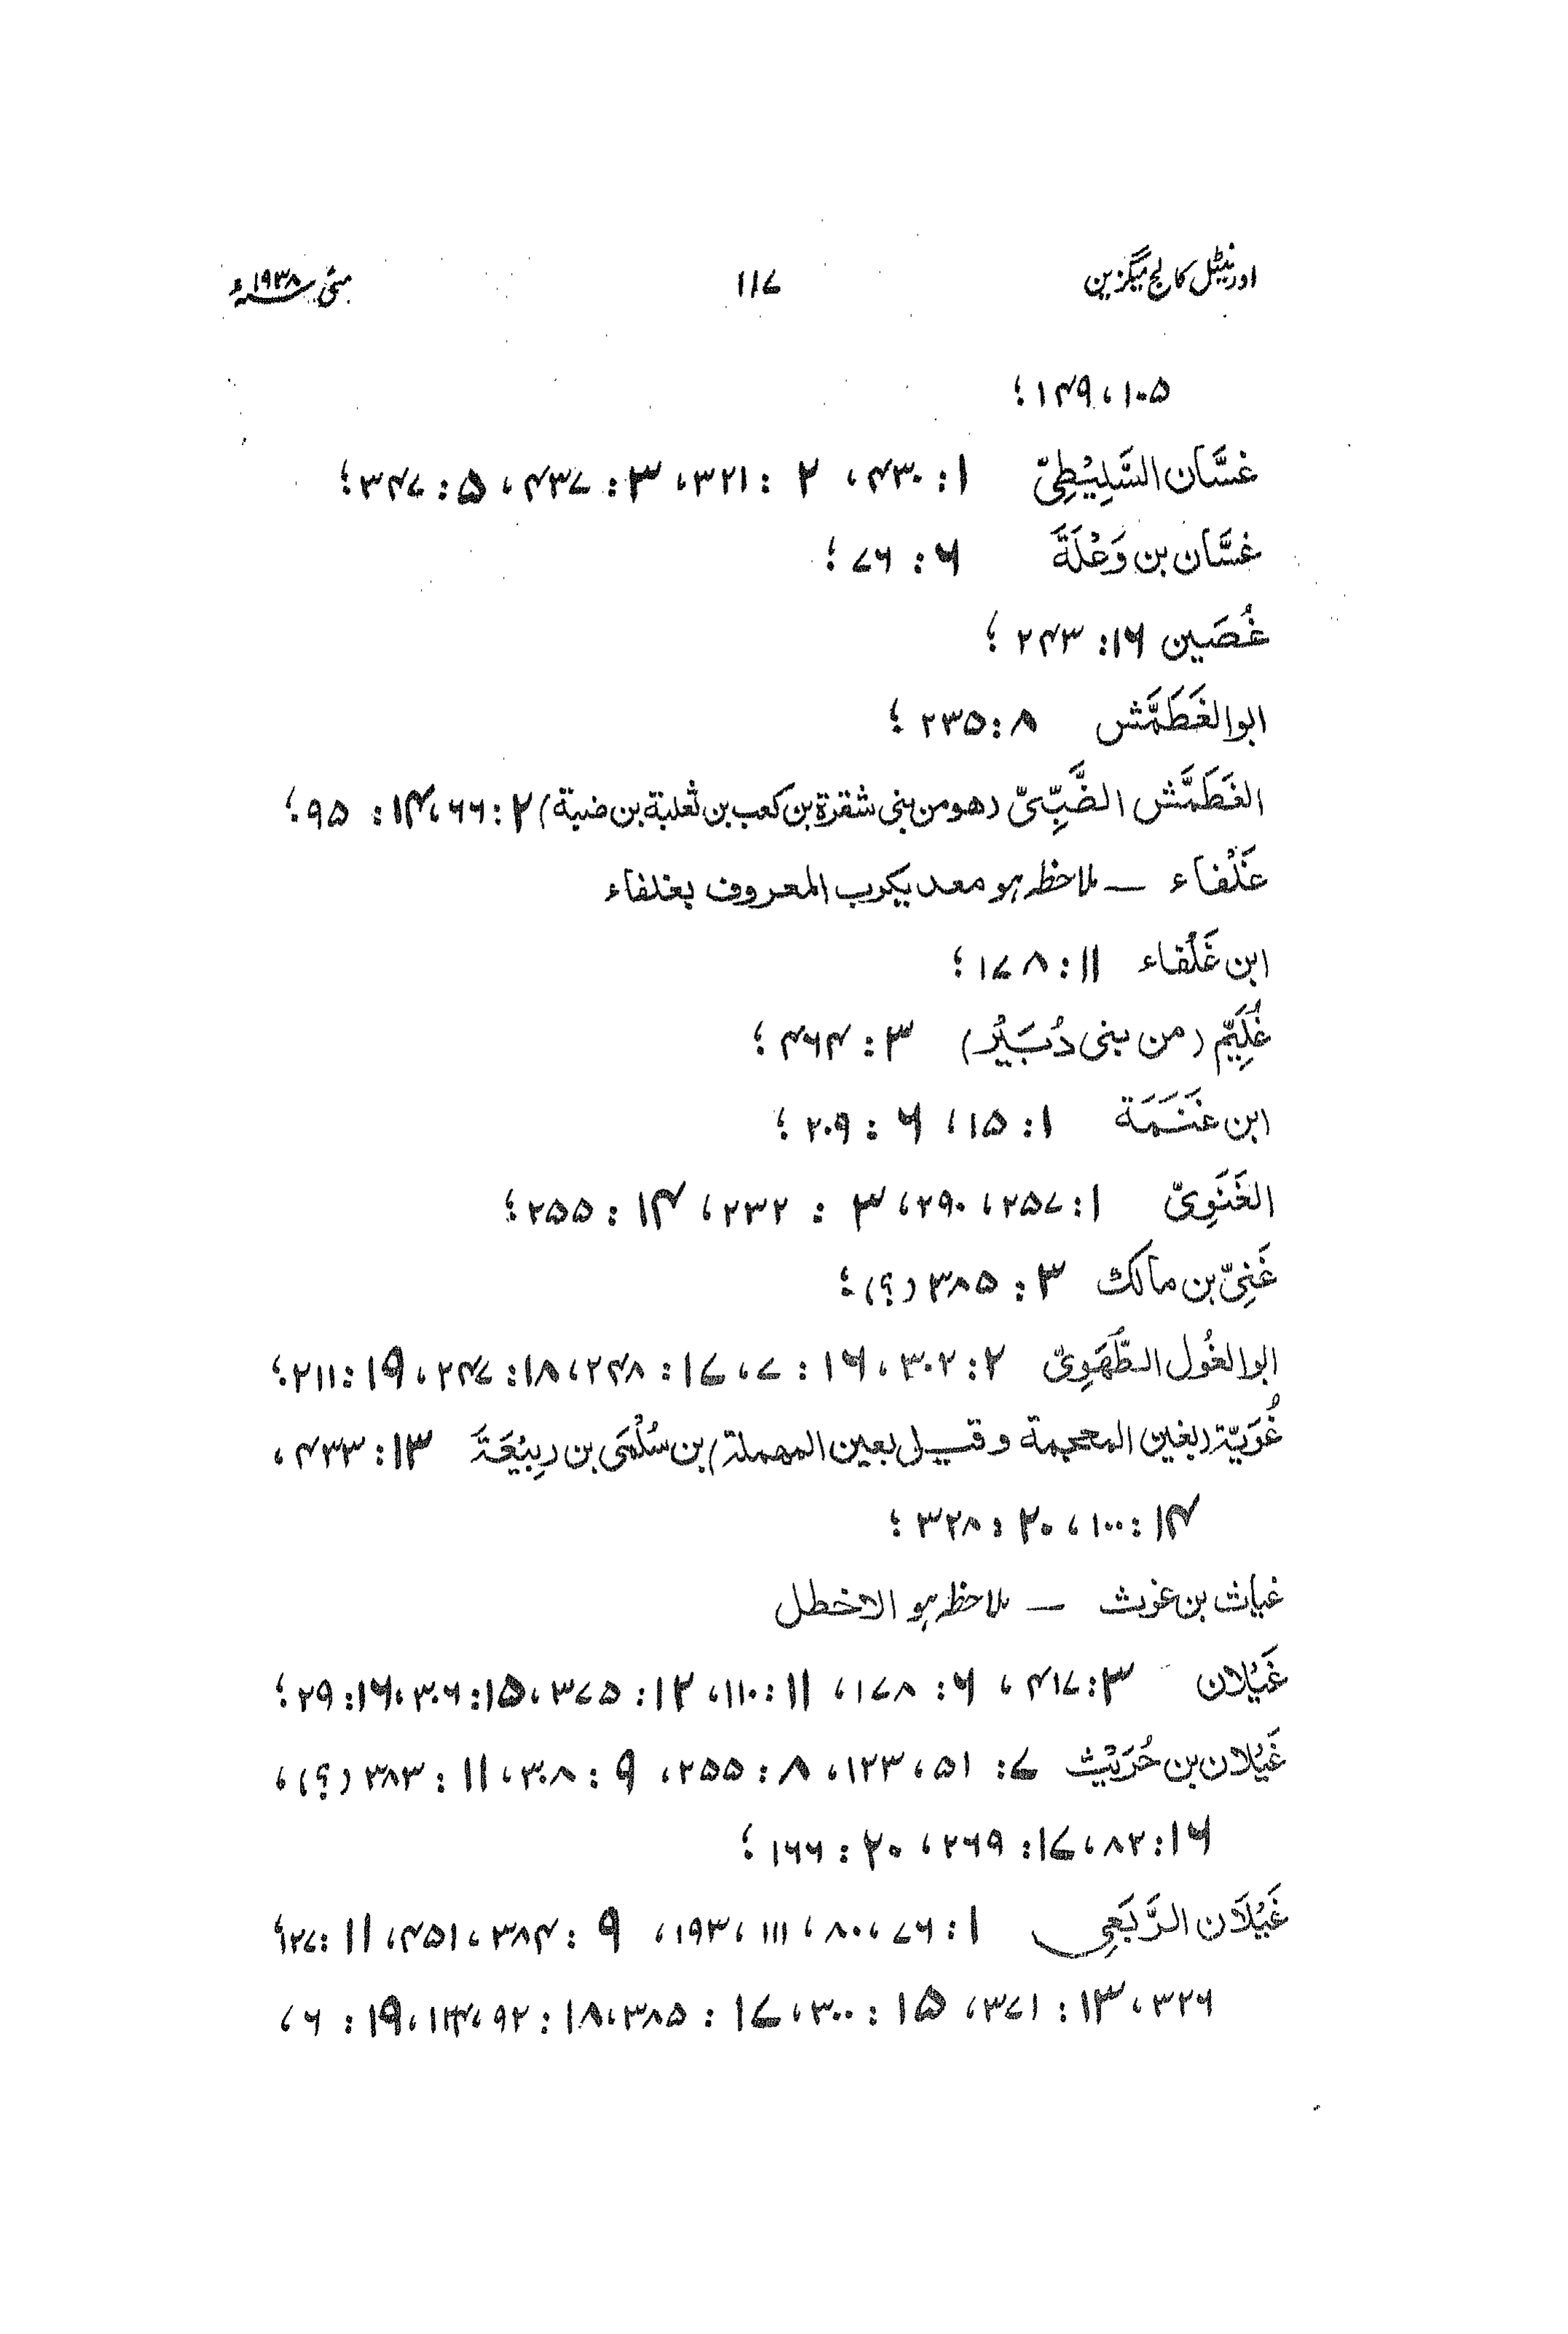 اورنٹیل کالج میگزین ۱۱۷ مئی سنہ ۱۹۳۸ء
۱۰۵، ۱۴۹؛
غسَّان السَّلِيْطِيّ ۱: ۴۳۰، ۲: ۳۲۱، ۳: ۴۳۷، ۵: ۳۴۷؛
غسَّان بن وَعْلَةَ ۶: ۷۶؛
غُصَين ۱۶: ۲۴۳؛
ابوالغَطَمَّش ۸: ۲۳۵؛
الغَطَمَّش الضَّبِّيّ (هو من بنى شقرة بن كعب بن ثعلبة بن ضبة) ۲: ۶۶، ۱۴: ۹۵؛
غَلْفاء — ملاحظہ ہو معد يكرب المعروف بغلفاء
ابن غَلْفاء ۱۱: ۱۷۸؛
غُلَيِّم (من بنى دُبَيْر) ۳: ۴۶۴؛
ابن غَنَمَة ۱: ۱۵، ۶: ۲۰۹؛
الغَنَوِيّ ۱: ۲۵۷، ۲۹۰، ۳: ۲۳۲، ۱۴: ۲۵۵؛
غَنِيّ بن مالك ۳: ۳۸۵ (؟)؛
ابوالغُول الطُّهَوِيّ ۲: ۳۰۲، ۱۶: ۷، ۱۷: ۲۴۸، ۱۸: ۲۴۷، ۱۹: ۲۱۱؛
غُوَيّة (بغين المعجمة وقيل بعين المهملة) بن سُلْمَى بن رَبِيْعَةَ ۱۳: ۴۳۳،
۱۴: ۱۰۰، ۲۰: ۳۲۸؛
غياث بن غوث — ملاحظہ ہو الاخطل
غَيْلان ۳: ۴۱۷، ۶: ۱۷۸، ۱۱: ۱۱۰، ۱۲: ۳۷۵، ۱۵: ۳۰۶، ۱۶: ۲۹؛
غَيْلان بن حُرَيْث ۷: ۵۱، ۱۲۳، ۸: ۲۵۵، ۹: ۳۰۸، ۱۱: ۳۸۳ (؟)،
۱۶: ۸۲، ۱۷: ۲۶۹، ۲۰: ۱۶۶؛
غَيْلَان الرَّبَعِي ۱: ۷۶، ۸۰، ۱۱۱، ۱۹۳، ۹: ۳۸۴، ۴۵۱، ۱۱: ۱۲۷؛
۳۲۶، ۱۳: ۳۷۱، ۱۵: ۳۰۰، ۱۷: ۳۸۵، ۱۸: ۹۲، ۱۹: ۶،